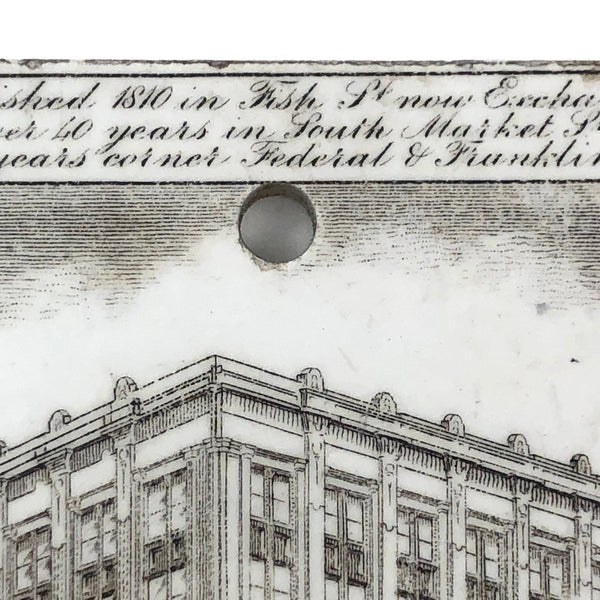 ished 1810 in Fish St now Excha
er 40 years in South Market St
years corner Federal & Franklin